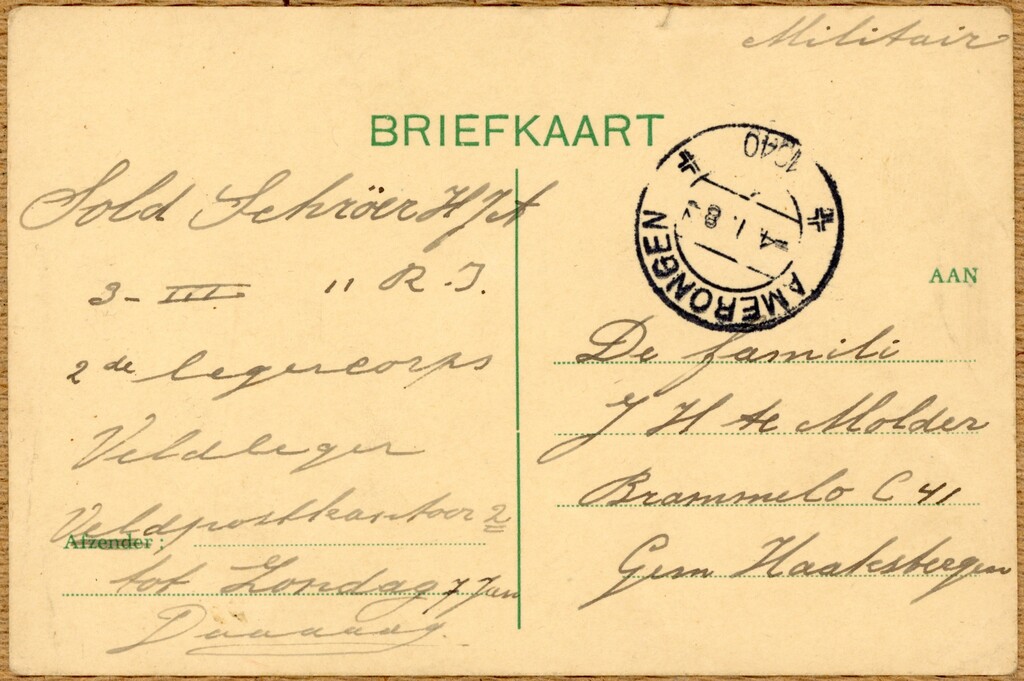 Militair
BRIEFKAART
Sold Schröer H J A
3 - III 11 R.I.
2de legercorps
Veldleger
Veldpostkantoor 2
Afzender:
tot Zondag 7 Jan
Daaaaag.
AMERONGEN
4.1.8
1940
AAN
De famili
J H te Molder
Brammelo C 41
Gem Haaksbergen